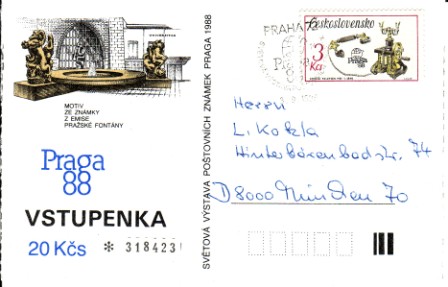 MOTIV
ZE ZNÁMKY
Z EMISE
PRAŽSKÉ FONTÁNY
Praga
88
VSTUPENKA
20 Kčs * 318423
SVĚTOVÁ VÝSTAVA POŠTOVNÍCH ZNÁMEK PRAGA 1988
PRAHA
Československo
3
Kčs
Herrn
L. Kokla
Hinterbärenbadstr. 74
D 8000 München 70